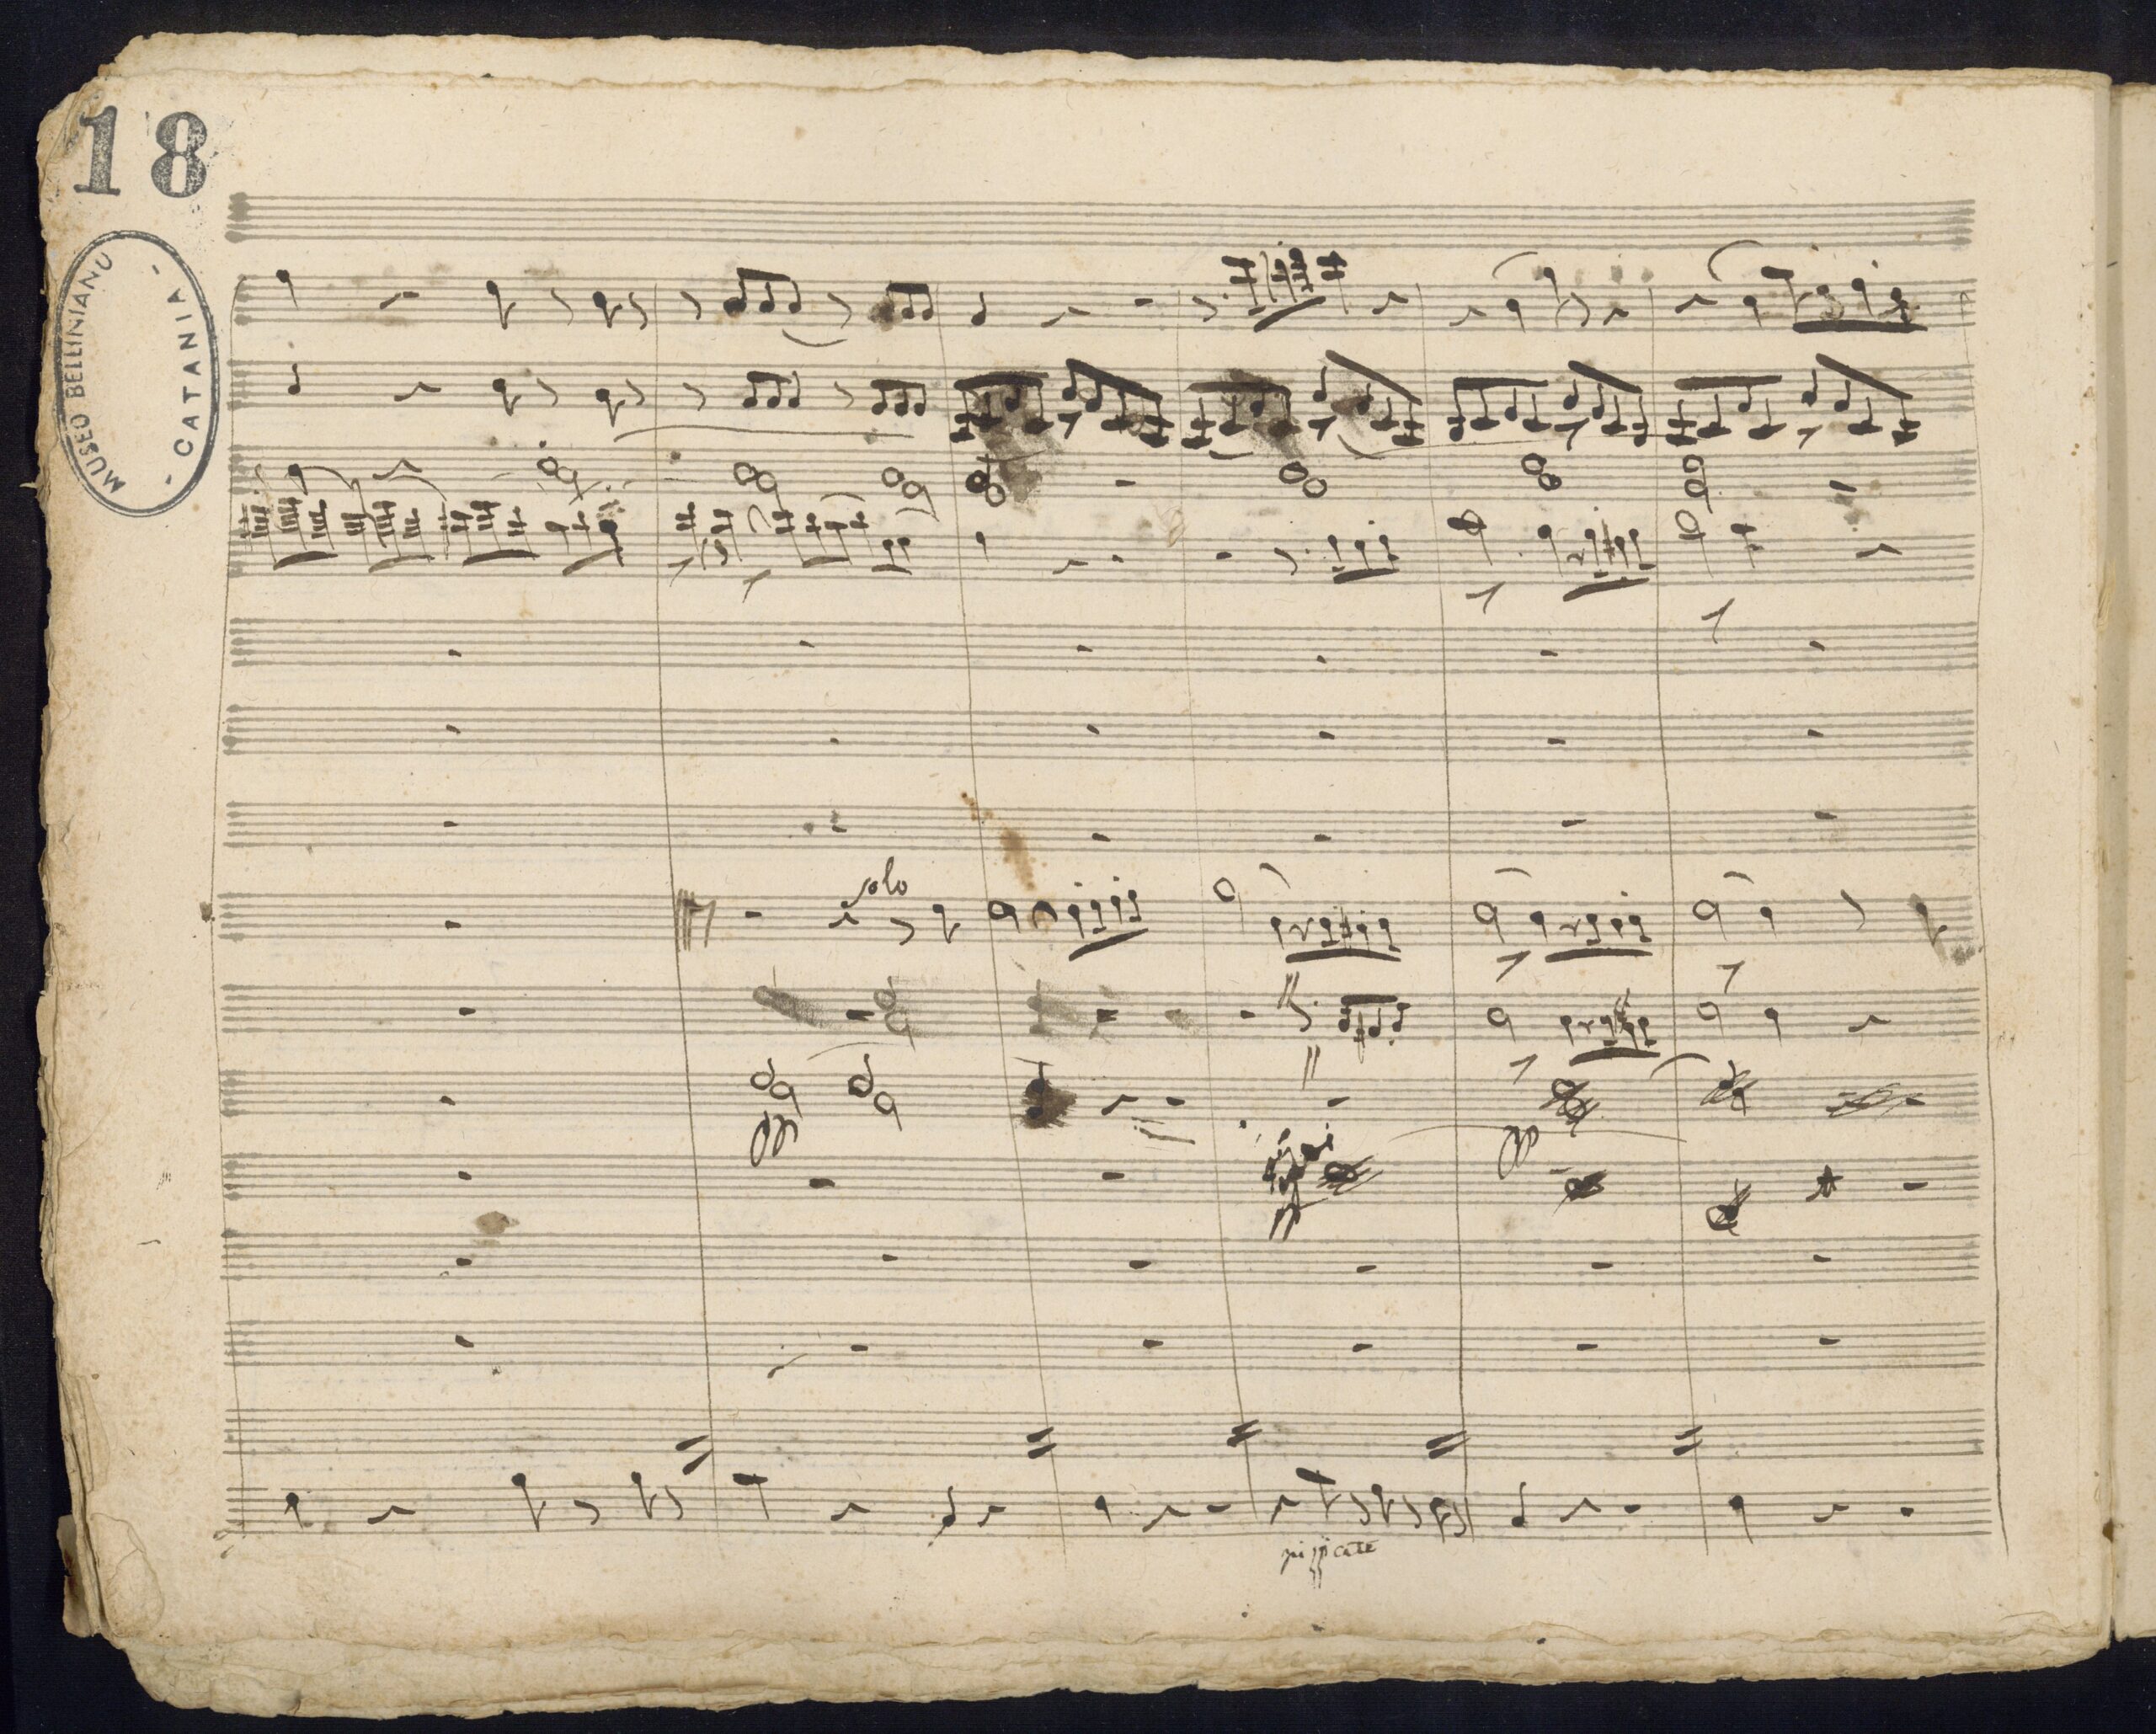 18
MUSEO BELLINIANU
- CATANIA -
solo
pp
pp
pp
pizzicate